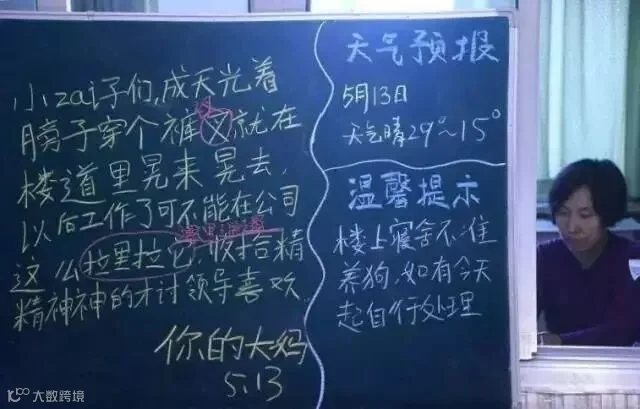 小zai子们,成天光着
膀子穿个裤叉就在
楼道里晃来晃去,
以后工作了可不能在公司
邋里邋遢
这么拉里拉它,收拾精
精神神的才讨领导喜欢.
你的大妈
5.13
天气预报
5月13日
天气晴29°~15°
温馨提示
楼上寝舍不准
养狗,如有今天
起自行处理
大数跨境